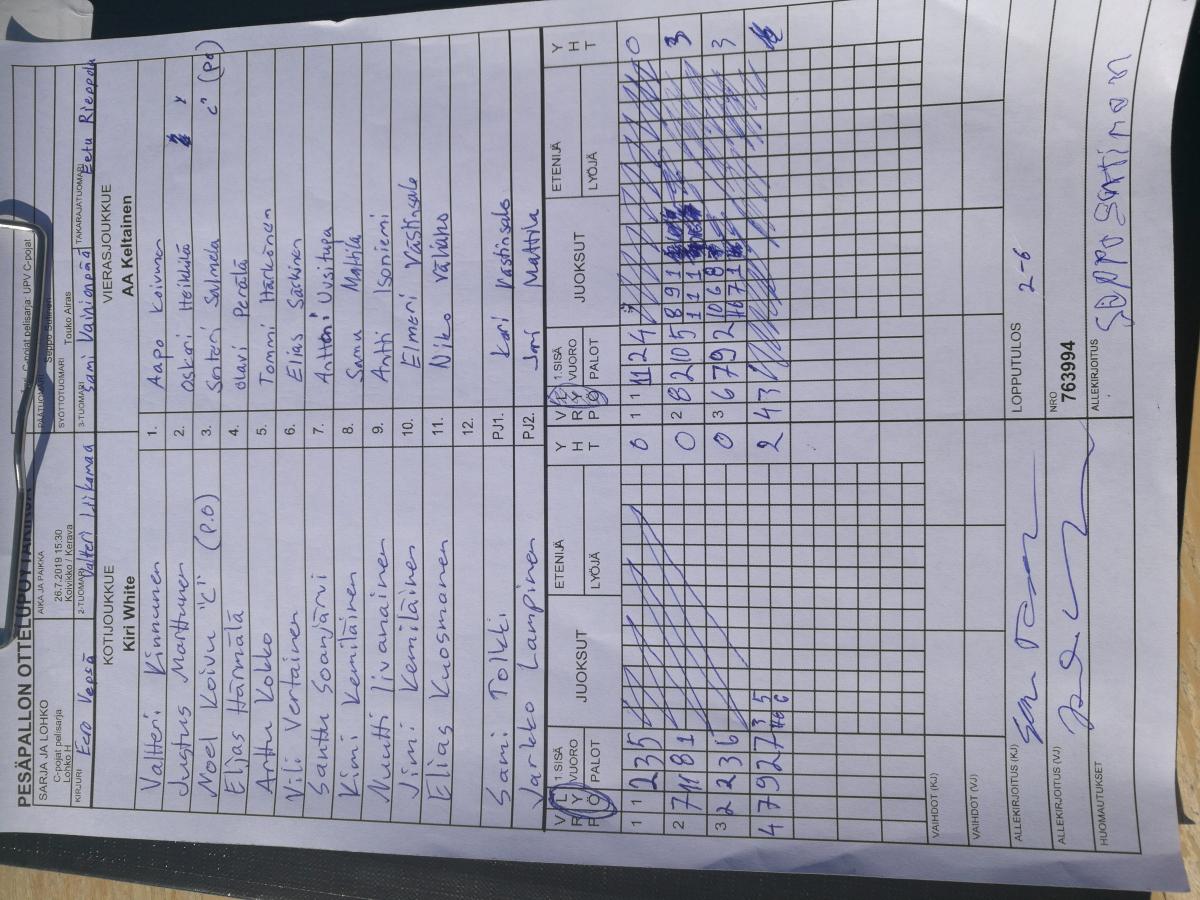 PESÄPALLON OTTELUPÖYTÄKIRJA
SARJA JA LOHKO
C-pojat pelisarja
Lohko H
AIKA JA PAIKKA
26.7.2019 15:30
Koivikko / Kerava
C-pojat pelisarja: UPV C-pojat
SYÖTTÖTUOMARI
Touko Airas
KIRJURI
Eero Vepsä
2-TUOMARI
Valtteri Liikamaa
3-TUOMARI
Sami Vainionpää
TAKARAJATUOMARI
Eetu Rieppola
KOTIJOUKKUE
Kiri White
VIERASJOUKKUE
AA Keltainen
Valtteri Kinnunen 1. Aapo Koivunen
Justus Marttunen 2. Oskari Heikkilä
Noel Koivu "C" (P.O) 3. Santeri Salmela C" (PO)
Elias Härmälä 4. Olavi Perälä
Arttu Kokko 5. Tommi Härkönen
Vili Vertainen 6. Elias Säckinen
Santtu Soanjärvi 7. Antton Uusitupa
Kimi Kemiläinen 8. Samu Mattila
Nuutti Iivanainen 9. Antti Isoniemi
Jimi Kemiläinen 10. Elmeri Västinsalo
Elias Kuosmanen 11. Niko Vähäaho
12.
Sami Tolkki PJ1. Kari Västinsalo
Jarkko Lampinen PJ2. Jari Mattila
V L 1.SISÄ JUOKSUT ETENIJÄ Y V L 1.SISÄ JUOKSUT ETENIJÄ Y
R Y VUORO H R Y VUORO H
P Ö PALOT LYÖJÄ T P Ö PALOT LYÖJÄ T
1 1 2 3 5 0 1 1 11 2 4 0
2 7 11 8 1 0 2 8 2 10 5 8 9 1 3
1 1 1
3 2 2 3 6 0 3 6 7 9 2 10 6 8 3
10 7 1
4 7 9 2 7 3 5 2 4 3
10 6
VAIHDOT (KJ)
VAIHDOT (VJ)
ALLEKIRJOITUS (KJ)
LOPPUTULOS
2-6
ALLEKIRJOITUS (VJ)
NRO
763994
HUOMAUTUKSET
ALLEKIRJOITUS